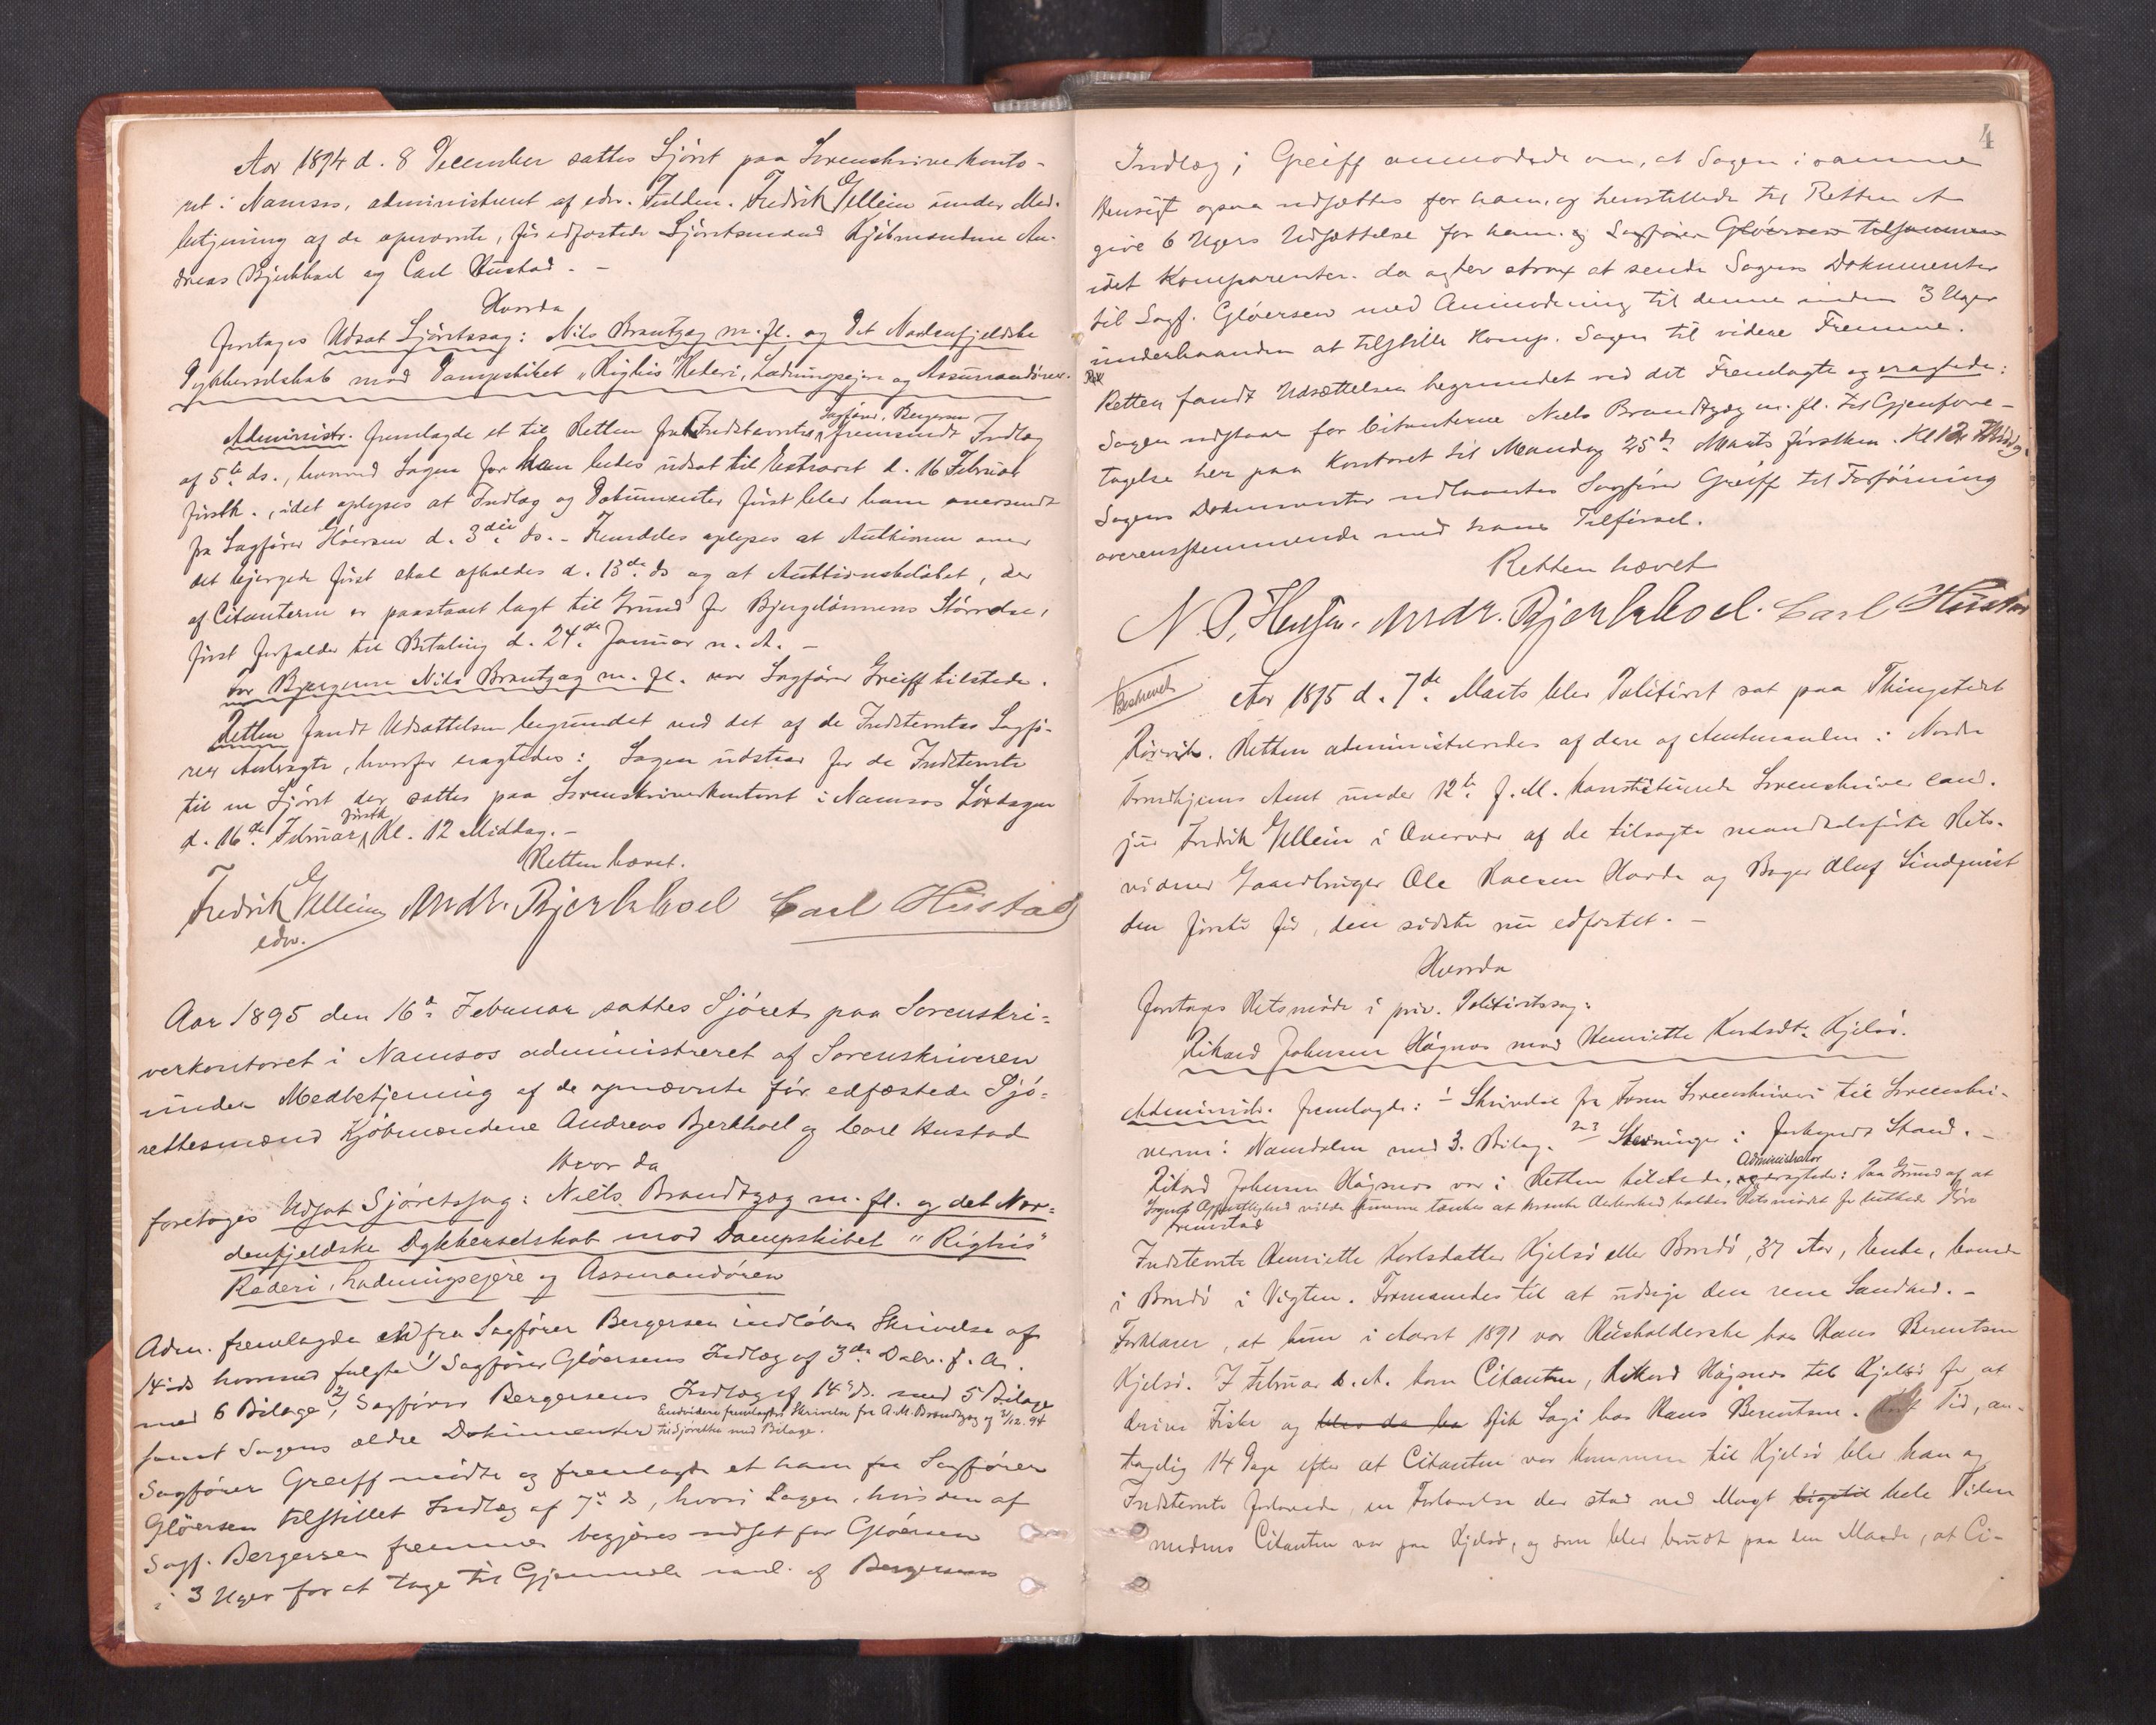 Aar 1894 d. 8 December sattes Sjöret paa Sorenskriverkonto-
ret i Namsos, administreret af edsv. Fuldm. Fredrik Gellein under Med-
betjening af de opnævnte, før edfæstede Sjöretsmænd Kjöbmændene An-
dreas Bjerkhoel og Carl Hustad. -
Hvorda
foretages Udsat Sjöretssag: Nils Brantzæg m. fl. og Det Nordenfjeldske
Dykkerselskab mod Dampskibet "Righis" Rederi, Ladningsejere og Assurandörer.
Administr. fremlagde et til Retten fra Indstævntes Sagförer Bergersen fremsendt Indlæg
af 5te ds., hvorved Sagen for ham bedes udsat til Extraret d. 16 Februar
förstk., idet oplyses at Indlæg og Dokumenter först blev ham oversendt
fra Sagförer Glöersen d. 3die ds. - Fremdeles oplyses at Auktionen over
det bjergede först skal afholdes d. 13de ds og at Auktionsbelöbet, der
af Citanterne er paastaaet lagt til Grund for Bjergelönnens Störrelse,
först forfalder til Betaling d. 24de Januar n. A. -
For Bjergerne Nils Brantzæg m. fl. var Sagförer Greiff tilstede.
Retten fandt Udsættelsen begrundet ved det af de Indstevntes Sagfö-
rer Anbragte, hvorfor eragtedes: Sagen udstaar for de Indstevnte
til en Sjöret der sættes paa Sorenskriverkontoret i Namsos Lördagen
d. 16de Februar förstk Kl. 12 Middag. -
Retten hævet.
Fredrik Gellein Andr. Bjerkhoel Carl Hustad
edsv.
Aar 1895 den 16de Februar sattes Sjöret paa Sorenskri=
verkontoret i Namsos administreret af Sorenskriveren
under Medbetjening af de opnævnte för edfæstede Sjö=
rettesmænd Kjöbmændene Andreas Bjerkhoel og Carl Hustad
Hvor da
foretages Udsat Sjöretssag: Niels Brandtzæg m. fl. og det Nor=
denfjeldske Dykkerselskab mod Dampskibet "Righis"
Rederi, Ladningsejere og Assurandören
Adm. fremlagde en fra Sagförer Bergersen indlöben Skrivelse af
14 ds hvormed fulgte 1/ Sagförer Glöersens Indlæg af 3die Dcbr. f. A.
med 6 Bilage 2/, Sagförer Bergersens Indlæg af 14 ds. med 5 Bilage
samt Sagens ældre Dokumenter Endvidere fremlagdes Skrivelse fra A. M. Brandtzæg af 3/12. 94
til Sjöretten med Bilage.
Sagförer Greiff mödte og fremlagde et ham fra Sagförer
Glöersen tilstillet Indlæg af 7de ds, hvori Sagen, hvis den af
Sagf. Bergersen fremmes begjæres udsat for Glöersen
i 3 Uger for at tage til Gjenmæle mod af Bergersens
4
Indlæg; Greiff anmodede om, at Sagen i samme
Hensigt ogsaa udsættes for ham, og henstillede til Retten at
give 6 Ugers Udsættelse for ham og Sagförer Glöersen tilsammen
idet Komparenten da agter strax at sende Sagens Dokumenter
til Sagf. Glöersen med Anmodning til denne inden 3 Uger
underhaanden at tilstille Komp. Sagen til videre Fremme.
Retten fandt Udsættelsen begrundet ved det Fremlagte og eragtede:
Sagen udstaar for Citanterne Niels Brandtzæg m. fl. til Gjenfore-
tagelse her paa Kontoret til Mandag 25de Marts förstkm. Kl 12 Middag.
Sagens Dokumenter udlaantes Sagförer Greiff til Forföining
overensstemmende med hans Tilförsel.
Retten hævet
Andr. Bjerkhoel. Carl Hustad
Beskrevet
Aar 1895 d. 7de Marts blev Politiret sat paa Thingstedet
Rörvik. Retten administreredes af den af Amtmanden i Nordre
Trondhjems Amt under 12te f. M. konstituerede Sorenskriver cand.
jur Fredrik Gellein i Overvær af de tilsagte mandtalsførte Rets-
vidner Gaardbruger Ole Hansen Havde og Bager Oluf Lindquist
den förste för, den sidste nu edfæstet. -
Hvorda
foretages Retsmöde i priv. Politiretssag:
Rikard Johnsen Högnes mod Henriette Karlsdt. Kjelsö.
Administr. fremlagde: 1 Skrivelse fra Fosen Sorenskriveri til Sorenskri-
veren i Namdalen med 3 Bilag. 2-3 Stevninger i forkyndt Stand. -
Rikard Johnsen Högnes var i Retten tilstede. Administrator eragtede: Paa Grund af at
Sagens Offentlighed vilde kunne tænkes at krænke Ærbarhed holdes Retsmödet for lukkede Döre
Fremstod
Indstevnte Henriette Karlsdatter Kjelsö eller Bondö, 37 Aar, Enke, boende
i Bondö i Vigten. Formanedes til at udsige den rene Sandhed. -
Forklarer, at hun i Aaret 1891 var Husholderske hos Hans Berentsen
Kjelsö. I Februar s. A. kom Citanten, Rikard Högnes til Kjelsö for at
drive Fiske og blev da ha fik Logi hos Hans Berentsen. Kort Tid, an-
tagelig 14 Dage efter at Citanten var kommen til Kjelsö blev han og
Indstevnte forlovede, en Forlovelse der stod ved Magt ligetil hele Tiden
medens Citanten var paa Kjelsö, og som blev brudt paa den Maade, at Ci-